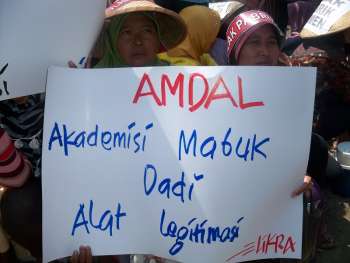 AMDAL
Akademisi Mabuk
Dadi
Alat legitimasi